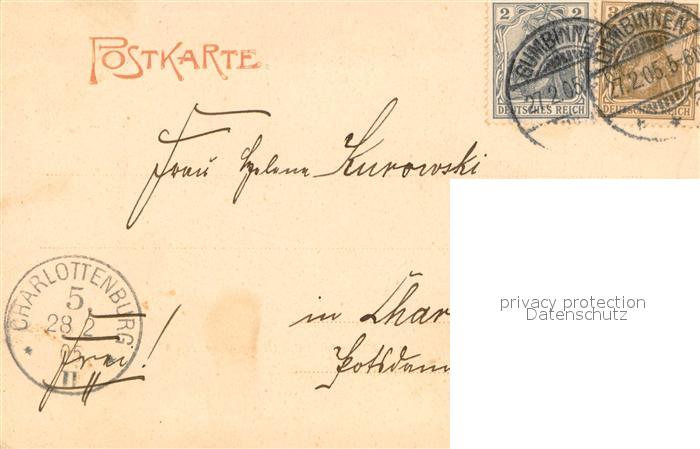 POSTKARTE
2 3
DEUTSCHES REICH DEUTSCHES REICH
GUMBINNEN 27.2.05
GUMBINNEN 27.2.05.5-6
Frau Helene Kurowski
privacy protection
Datenschutz
CHARLOTTENBURG
5
28 2
05
II
Frei!
in Char
Potsdam